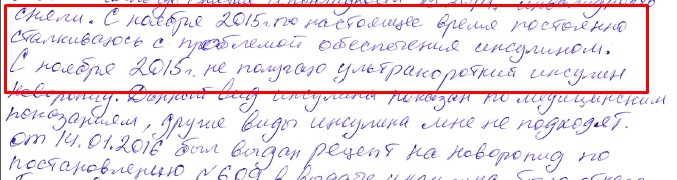 сняли. С ноября 2015г. по настоящее время постоянно
сталкиваюсь с проблемой обеспечения инсулином.
С ноября 2015г. не получаю ультракороткий инсулин
Новорапид. Данный вид инсулина показан по медицинским
показаниям, другие виды инсулина мне не подходят.
от 14.01.2016 был выдан рецепт на новорапид по
постановлению №609